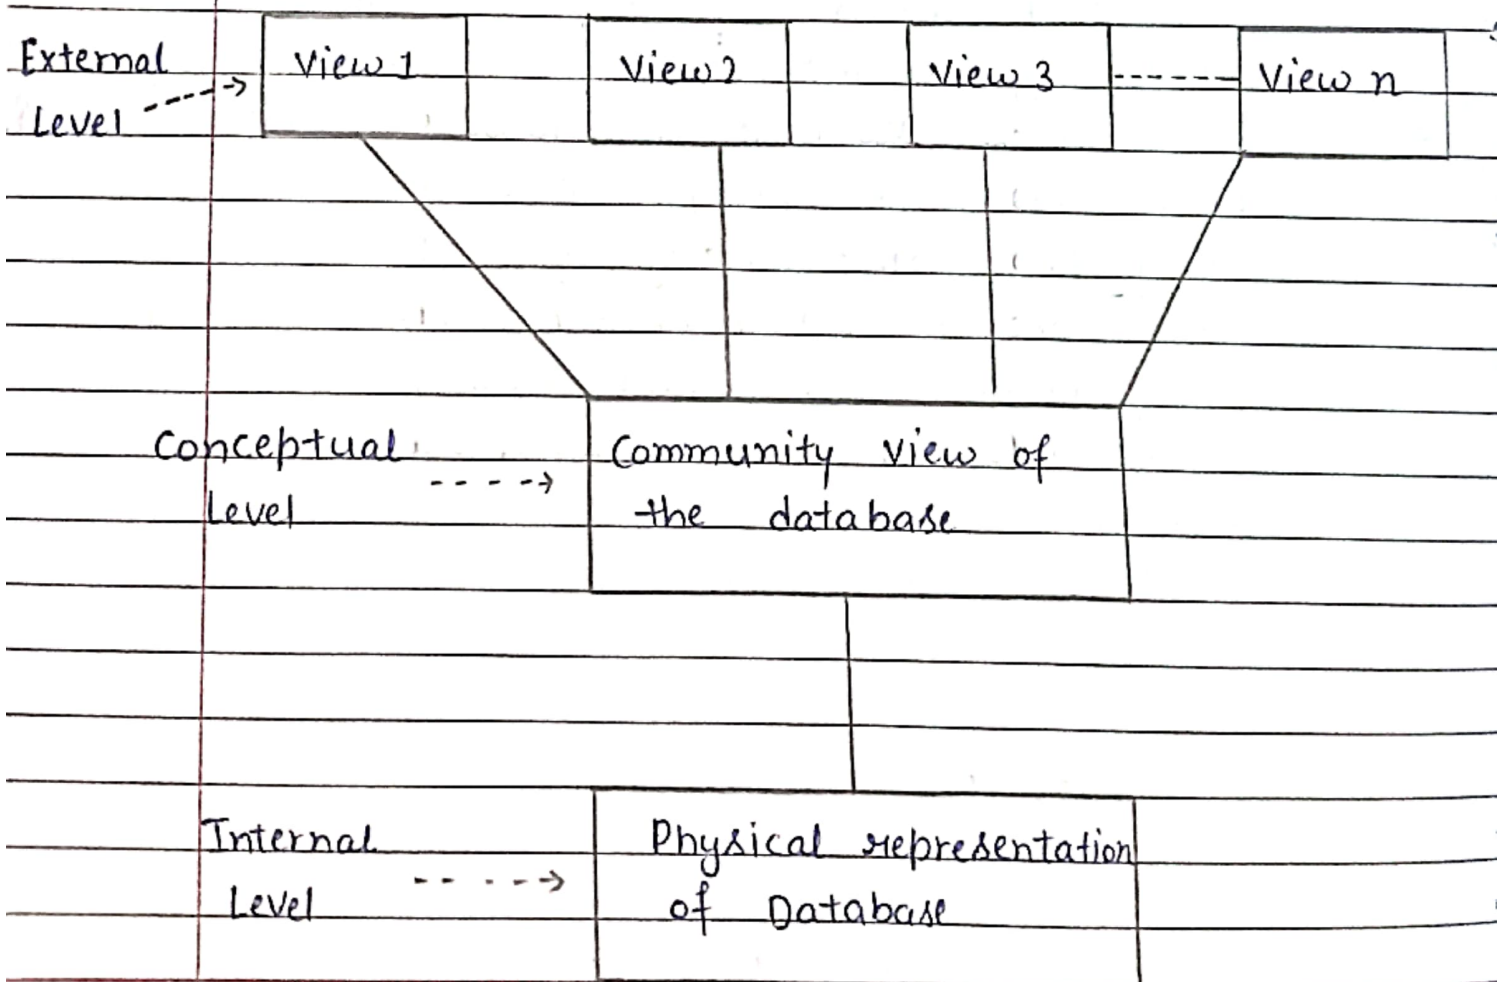 External
Level
View 1
View 2
View 3
View n
Conceptual
Level
Community view of
the database
Internal
Level
Physical representation
of Database